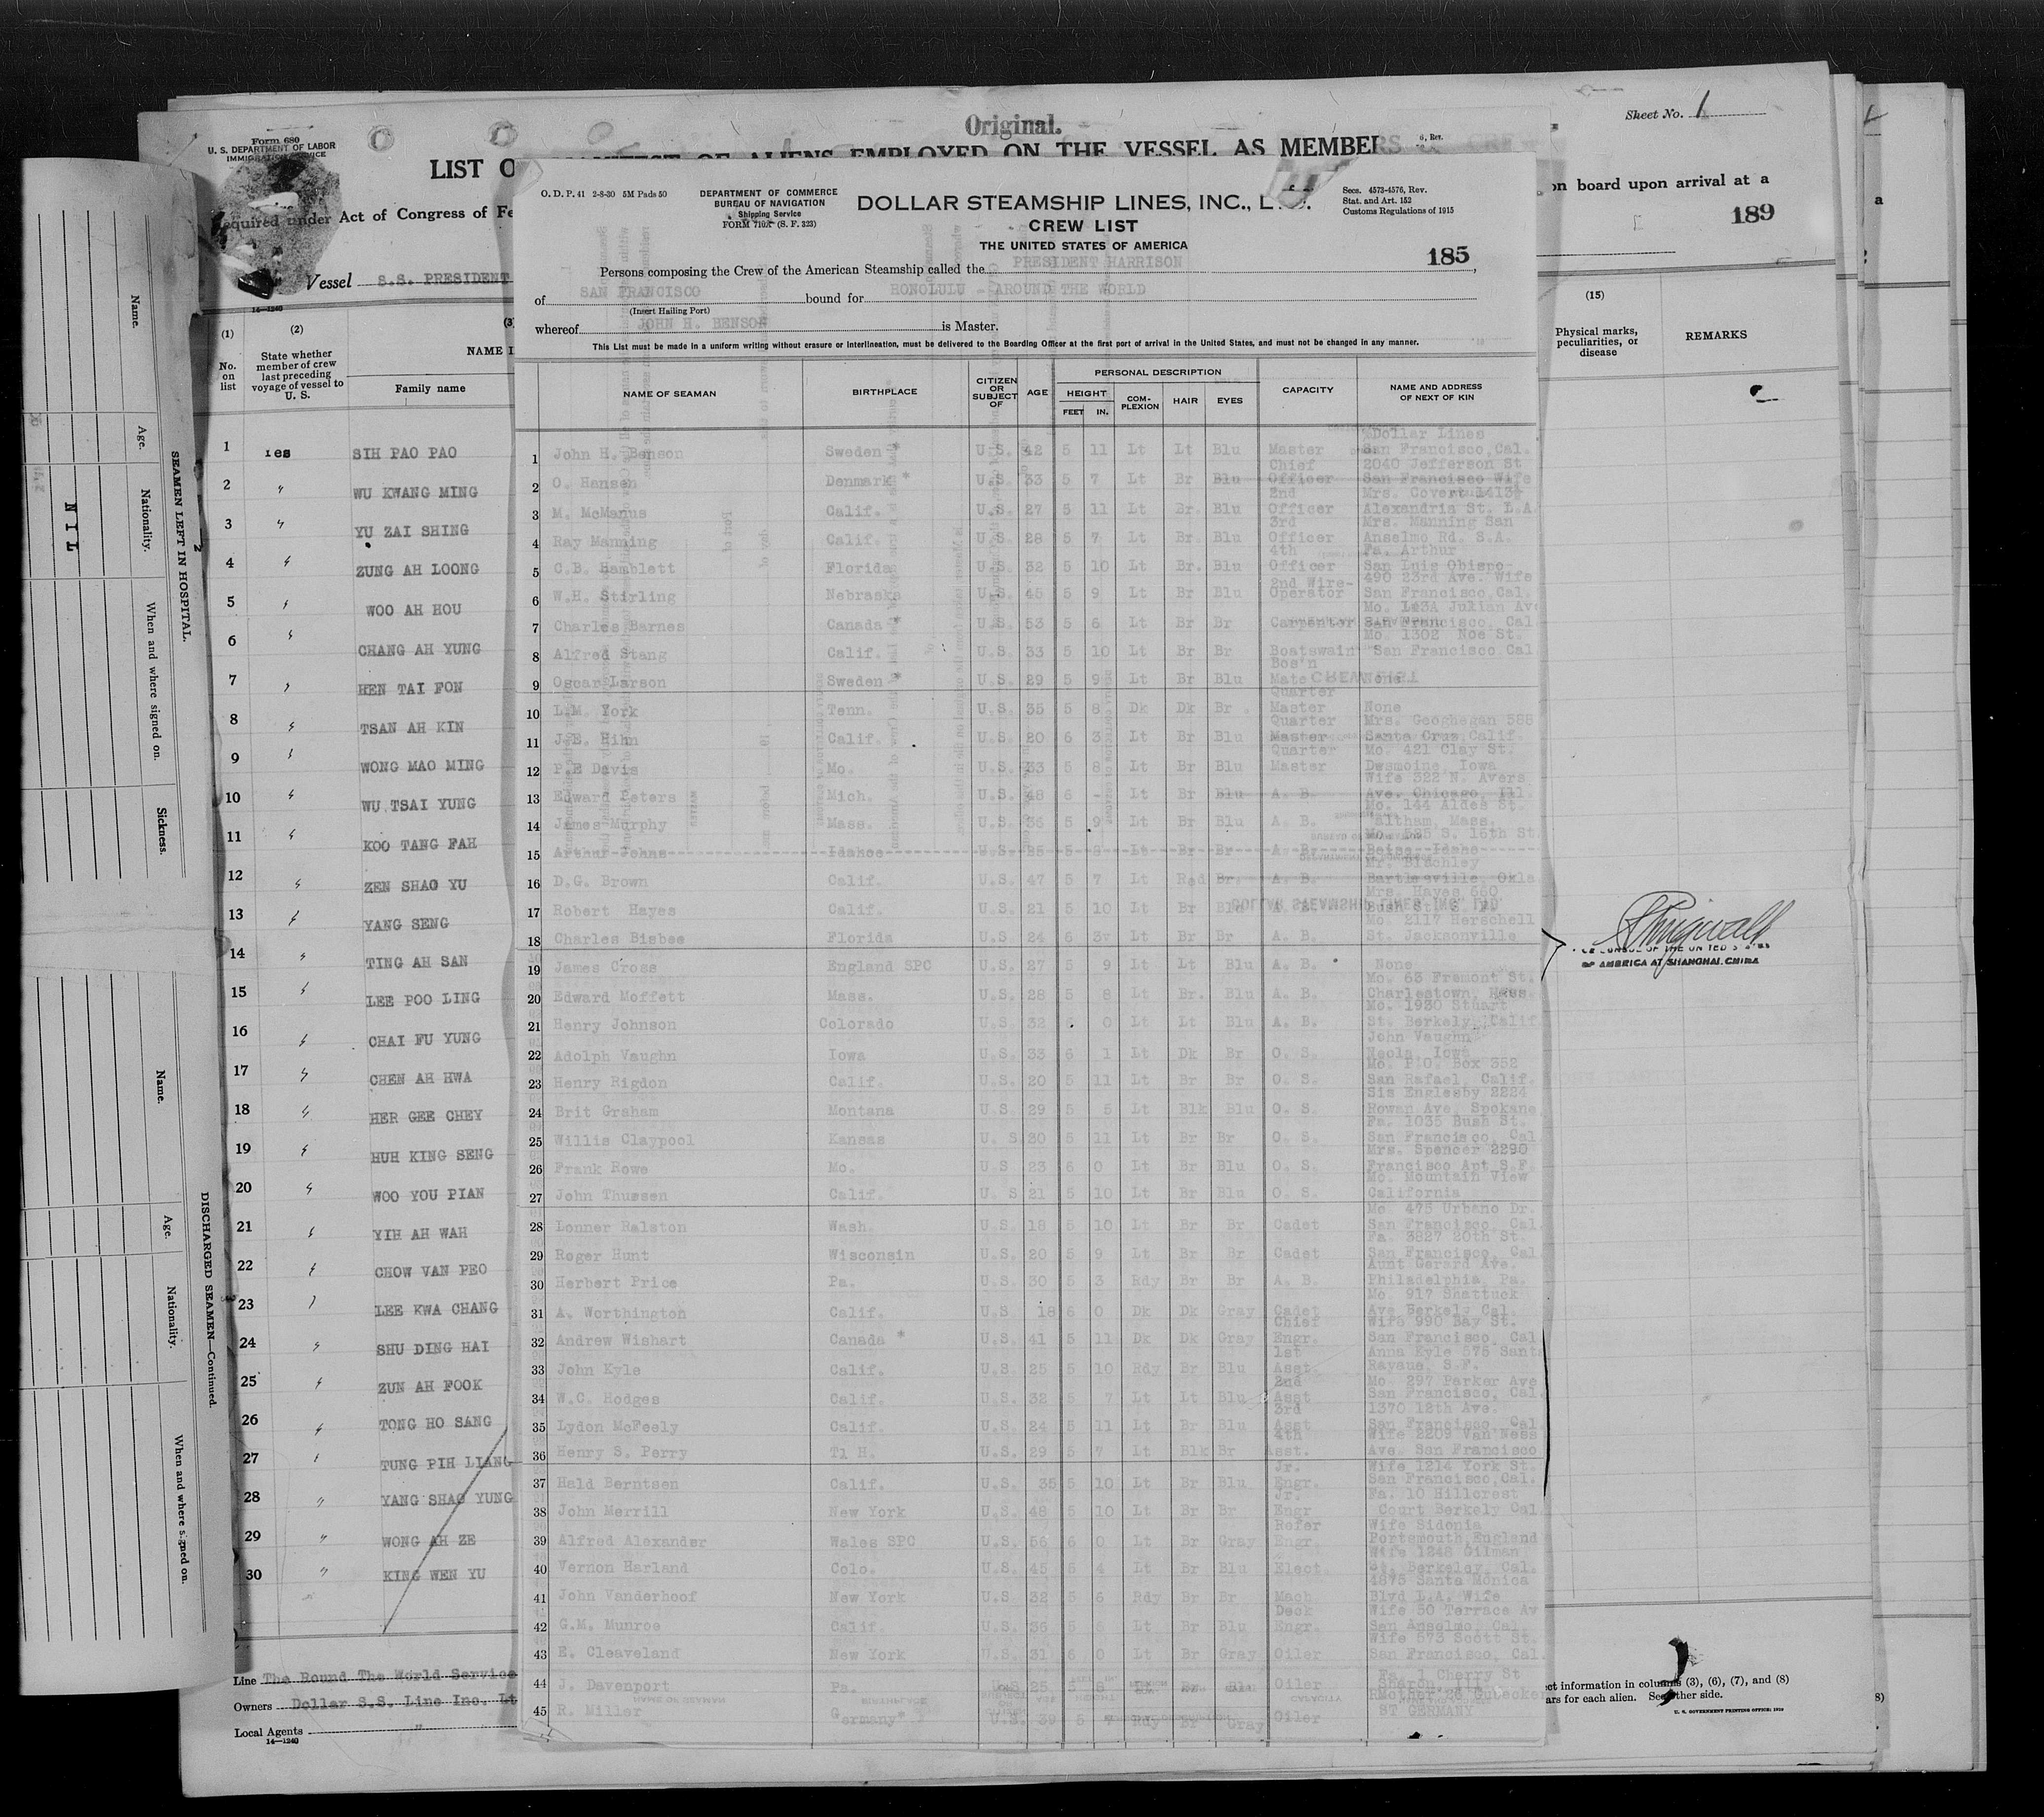 Form 680
U. S. DEPARTMENT OF LABOR
IMMIGRATION SERVICE
Original.
LIST O
MANIFEST OF ALIENS EMPLOYED ON THE VESSEL AS MEMBERS
Sheet No. 1
required under Act of Congress of Fe
on board upon arrival at a
189
Vessel S.S. PRESIDENT
14—1240
(1)
No. on list
(2)
State whether member of crew last preceding voyage of vessel to U. S.
(3)
Family name
(15)
Physical marks, peculiarities, or disease
REMARKS
1 Yes SIH PAO PAO
2 " WU KWANG MING
3 " YU ZAI SHING
4 " ZUNG AH LOONG
5 " WOO AH HOU
6 " CHANG AH YUNG
7 " HEN TAI FON
8 " TSAN AH KIN
9 " WONG MAO MING
10 " WU TSAI YUNG
11 " KOO TANG FAH
12 " ZEN SHAO YU
13 " YANG SENG
14 " TING AH SAN
15 " LEE POO LING
16 " CHAI FU YUNG
17 " CHEN AH HWA
18 " HER GEE CHEY
19 " HUH KING SENG
20 " WOO YOU PIAN
21 " YIH AH WAH
22 " CHOW VAN PEO
23 " LEE KWA CHANG
24 " SHU DING HAI
25 " ZUN AH FOOK
26 " TONG HO SANG
27 " TUNG PIH LIANG
28 " YANG SHAO YUNG
29 " WONG AH ZE
30 " KING WEN YU
Line The Round The World Service
Owners Dollar S.S. Line Inc. Lt
Local Agents "
14—1240
OF AMERICA AT SHANGHAI, CHINA
ct information in columns (3), (6), (7), and (8)
ars for each alien. See other side.
U. S. GOVERNMENT PRINTING OFFICE: 1929
8)
a
Name.
Age.
Nationality.
When and where signed on.
Sickness.
SEAMEN LEFT IN HOSPITAL.
NIL
Name.
Age.
Nationality.
When and where signed on.
DISCHARGED SEAMEN—Continued.
O. D. P. 41 2-8-30 5M Pads 50
DEPARTMENT OF COMMERCE
BUREAU OF NAVIGATION
Shipping Service
FORM 710A (S. F. 323)
DOLLAR STEAMSHIP LINES, INC., LTD.
Secs. 4573-4576, Rev.
Stat. and Art. 152
Customs Regulations of 1915
CREW LIST
THE UNITED STATES OF AMERICA
185
Persons composing the Crew of the American Steamship called the PRESIDENT HARRISON,
of SAN FRANCISCO bound for HONOLULU - AROUND THE WORLD
(Insert Hailing Port)
whereof JOHN H. BENSON is Master.
This List must be made in a uniform writing without erasure or interlineation, must be delivered to the Boarding Officer at the first port of arrival in the United States, and must not be changed in any manner.
NAME OF SEAMAN
BIRTHPLACE
CITIZEN OR SUBJECT OF
AGE
PERSONAL DESCRIPTION
HEIGHT
FEET IN.
COMPLEXION
HAIR
EYES
CAPACITY
NAME AND ADDRESS OF NEXT OF KIN
1 John H. Benson Sweden * U.S. 42 5 11 Lt Lt Blu Master %Dollar Lines San Francisco, Cal.
2 O. Hansen Denmark * U.S. 33 5 7 Lt Br Blu Chief Officer 2040 Jefferson St San Francisco Wife
3 M. McManus Calif. U.S. 27 5 11 Lt Br. Blu 2nd Officer Mrs. Covert 1413½ Alexandria St. L.A.
4 Ray Manning Calif. U.S. 28 5 7 Lt Br. Blu 3rd Officer Mrs. Manning San Anselmo Rd. S.A.
5 C.B. Hamblett Florida U.S. 32 5 10 Lt Br. Blu 4th Officer Fa. Arthur San Luis Obispo
6 W.H. Stirling Nebraska U.S. 45 5 9 Lt Br Blu 2nd Wire-Operator 490 23rd Ave. Wife San Francisco, Cal.
7 Charles Barnes Canada * U.S. 53 5 6 Lt Br Br Carpenter Mo. 143A Julian Ave San Francisco, Cal
8 Alfred Stang Calif. U.S. 33 5 10 Lt Br Br Boatswain Mo. 1302 Noe St. San Francisco Cal
9 Oscar Larson Sweden * U.S. 29 5 9 Lt Br Blu Bos'n Mate None
10 L.M. York Tenn. U.S. 35 5 8 Dk Dk Br. Quarter Master None
11 J.E. Hihn Calif. U.S. 20 6 3 Lt Br Blu Quarter Master Mrs. Geoghegan 588 Santa Cruz, Calif.
12 P.E Davis Mo. U.S. 33 5 8 Lt Br Blu Quarter Master Mo. 421 Clay St. Desmoine, Iowa
13 Edward Peters Mich. U.S. 48 6 - Lt Br Blu A. B. Wife 322 N. Avers Ave. Chicago, Ill.
14 James Murphy Mass. U.S. 36 5 9 Lt Br Blu A. B. Mo. 144 Alder St. Waltham, Mass.
15 Arthur Johns Idahoe U.S. 25 5 8 Lt Br Br A. B. S. 16th St. Boise Idaho
16 D.G. Brown Calif. U.S. 47 5 7 Lt Red Br. A. B. Mr. Blachley Bartlesville, Okla
17 Robert Hayes Calif. U.S. 21 5 10 Lt Br Blu A. B. Mrs. Hayes 660 Bush St. S. F.
18 Charles Bisbee Florida U.S 24 6 3 Lt Br Br A. B. Mo. 2117 Herschell St. Jacksonville
19 James Cross England SPC U.S. 27 5 9 Lt Lt Blu A. B. None
20 Edward Moffett Mass. U.S. 28 5 8 Lt Br. Blu A. B. Mo. 63 Fremont St. Charlestown, Mass
21 Henry Johnson Colorado U.S. 32 6 0 Lt Lt Blu A. B. Mo. 1930 Stuart St. Berkely, Calif
22 Adolph Vaughn Iowa U.S. 33 6 1 Lt Dk Br O. S. John Vaughn Neola, Iowa
23 Henry Rigdon Calif. U.S. 20 5 11 Lt Br Br O. S. Mo. P.O. Box 352 San Rafael, Calif.
24 Brit Graham Montana U.S 29 5 5 Lt Blk Blu O. S. Sis Englesby 2224 Rowan Ave, Spokane
25 Willis Claypool Kansas U. S 20 5 11 Lt Br Br O. S. Fa. 1035 Bush St. San Francisco, Cal
26 Frank Rowe Mo. U.S 23 6 0 Lt Br Blu O. S. Mrs. Spencer 2290 Francisco Apt S.F.
27 John Thussen Calif. U. S 21 5 10 Lt Br Blu O. S. Mo. Mountain View California
28 Lonner Ralston Wash. U.S 18 5 10 Lt Br Br Cadet Mo. 475 Urbano Dr. San Francisco, Cal.
29 Roger Hunt Wisconsin U.S. 20 5 9 Lt Br Br Cadet Fa. 3827 20th St. San Francisco, Cal
30 Herbert Price Pa. U.S. 30 5 3 Rdy Br Br A. B. Aunt Gerard Ave. Philadelphia, Pa.
31 A. Worthington Calif. U.S 18 6 0 Dk Dk Gray Cadet Mo. 917 Shattuck Ave Berkely Cal.
32 Andrew Wishart Canada * U.S. 41 5 11 Dk Dk Gray Chief Engr. Wife 990 Bay St. San Francisco, Cal
33 John Kyle Calif. U.S. 25 5 10 Rdy Br Blu 1st Asst. Anna Kyle 575 Sant Rayaus, S.F.
34 W.C. Hodges Calif. U.S. 32 5 7 Lt Lt Blu 2nd Asst Mo. 297 Parker Ave San Francisco, Cal.
35 Lydon McFeely Calif. U.S. 24 5 11 Lt Br Blu 3rd Asst 1370 12th Ave. San Francisco, Cal
36 Henry S. Perry T. H. U.S. 29 5 7 Lt Blk Br 4th Asst. Wife 2209 Van Ness Ave. San Francisco
37 Hald Berntsen Calif. U.S. 35 5 10 Lt Br Blu Jr. Engr. Wife 1214 York St. San Francisco, Cal.
38 John Merrill New York U.S. 48 5 10 Lt Br Br Jr. Engr Fa. 10 Hillcrest Court Berkely Cal.
39 Alfred Alexander Wales SPC U.S. 56 6 0 Lt Br Gray Refer Engr. Wife Sidonia Portsmouth, England
40 Vernon Harland Colo. U.S. 45 5 4 Lt Br Blu Elect Wife 1248 Gilman St. Berkeley, Cal.
41 John Vanderhoof New York U.S 32 5 6 Rdy Br Br Mach 4875 Santa Monica Blvd L.A. Wife
42 G.M. Munroe Calif. U.S. 36 5 6 Lt Br Blu Deck Engr. Wife 30 Terrace Av San Anselmo, Cal.
43 E. Cleaveland New York U.S. 31 6 0 Lt Br Gray Oiler Wife 573 Scott St. San Francisco, Cal.
44 J. Davenport Pa. U.S 25 5 8 Lt Br Blu Oiler Fa. 1 Cherry St Sharon, Pa
45 R. Miller Germany* U.S. 39 5 7 Rdy Br Gray Oiler Mother 26 ST GERMANY